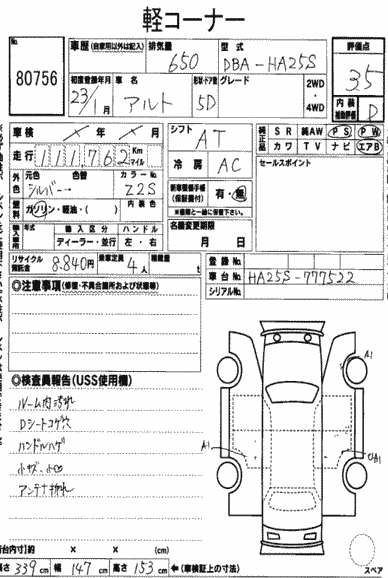 軽コーナー
No.
80756
車歴 (自家用以外は記入)
排気量 650
型式 DBA-HA25S
評価点 3.5
初度登録年月 23/1月
車名 アルト
形状・ドア数 5D
グレード
2WD・4WD
内装補助評価 D
車検 年 月
走行 111762 Km マイル
シフト AT
冷房 AC
純正品 SR 純AW PS PW
カワ TV ナビ エアB
セールスポイント
外色 元色 シルバー 色替 カラーNo. Z2S
燃料 ガソリン・軽油・( ) 内装色
新車整備手帳(保証書付) 有・無
※書類と一緒に保管下さい。
輸入車用 年式 輸入区分 ハンドル
ディーラー・並行 左・右
名義変更期限
月 日
リサイクル預託金 8.840円
乗車定員 4人
積載量 t
登録No.
車台No. HA25S-777522
シリアルNo.
◎注意事項 (修復・不具合箇所および状態等)
◎検査員報告(USS使用欄)
ルーム内汚れ
Dシートコゲ穴
ハンドルハゲ
小キズ・小凹
A1
A1
A1
スペア
荷台内寸 約 × × (cm)
長さ 339 cm 幅 147 cm 高さ 153 cm ←(車検証上の寸法)